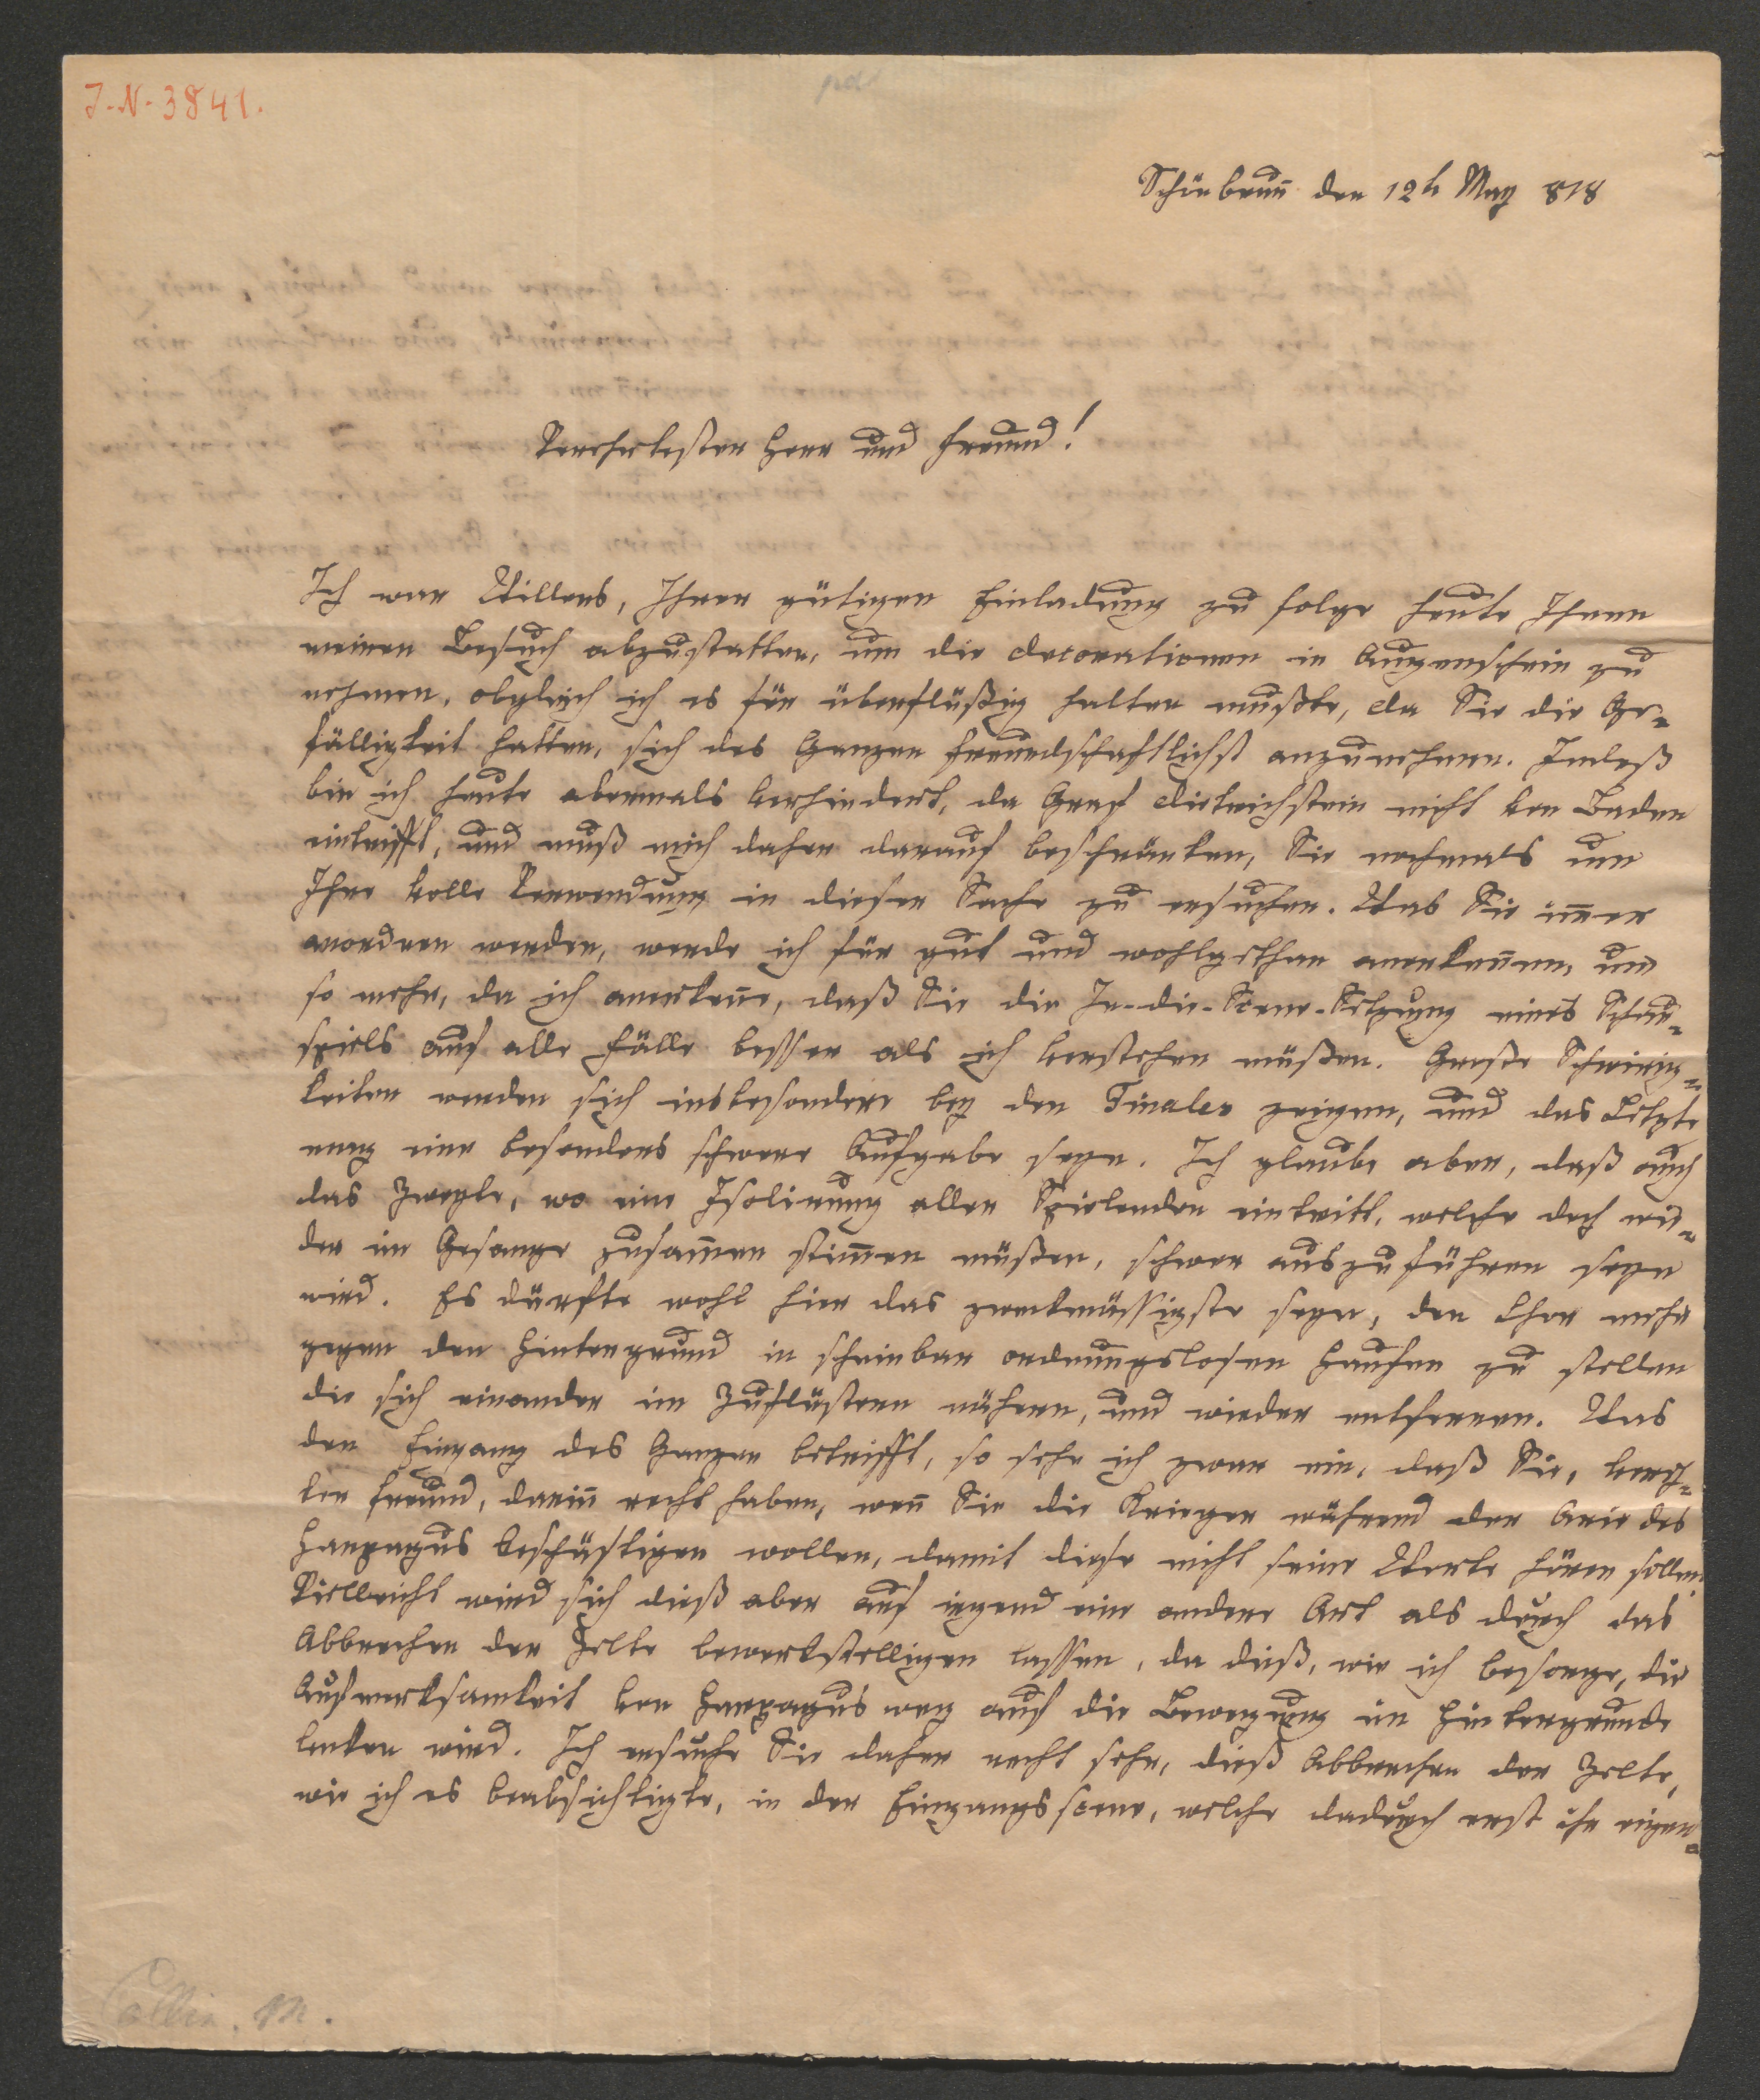 J.-N.-3841.
Schönbrunn den 12t May 818
Verehrtester Herr und Freund!
Ich war Willens, Ihrer gütigen Einladung zu folge heute Ihnen
meinen Besuch abzustatten, um die Decorationen in Augenschein zu
nehmen, obgleich ich es für überflüßig halten mußte, da Sie die Ge-
fälligkeit hatten, sich des Ganzen freundschaftlichst anzunehmen. Indeß
bin ich heute abermals verhindert, da Graf Dietrichstein nicht von Baden
eintrifft, und muß mich daher darauf beschränken, Sie nochmals um
Ihre volle Verwendung in dieser Sache zu ersuchen. Was Sie im̅er
anordnen werden, werde ich für gut und wohlgethan anerken̅en, um
so mehr, da ich anerken̅e, daß Sie die In-die-Scene-Setzung eines Schau-
spiels auf alle Fälle besser als ich verstehen müßen. Große Schwierig-
keiten werden sich insbesondere bey den Finales zeigen, und das Letzte
mag eine besonders schwere Aufgabe seyn. Ich glaube aber, daß auch
das Zweyte, wo eine Isolirung aller Spielenden eintritt, welche doch wie-
der im Gesange zusam̅en stim̅en müßen, schwer auszuführen seyn
wird. Es dürfte wohl hier das zweckmässigste seyn, den Chor mehr
gegen den Hintergrund in scheinbar ordnungslosen Haufen zu stellen
die sich einander im Zuflüstern nähern, und wieder entfernen. Was
den Eingang des Ganzen betrifft, so sehe ich zwar ein, daß Sie, verehr-
ter Freund, darin̅ recht haben, wen̅ Sie die Krieger während der Arie des
Harpagus beschäftigen wollen, damit diese nicht seine Worte hören sollen.
Vielleicht wird sich dieß aber auf irgend eine andere Art als durch das
Abbrechen der Zelte bewerkstelligen lassen, da dieß, wie ich besorge, die
Aufmerksamkeit von Harpagus weg auf die Bewegung im Hintergrunde
lenken wird. Ich ersuche Sie daher recht sehr, dieß Abbrechen der Zelte,
wie ich es beabsichtigte, in der Eingangsscene, welche dadurch erst ihr eigen-
Collin. M.